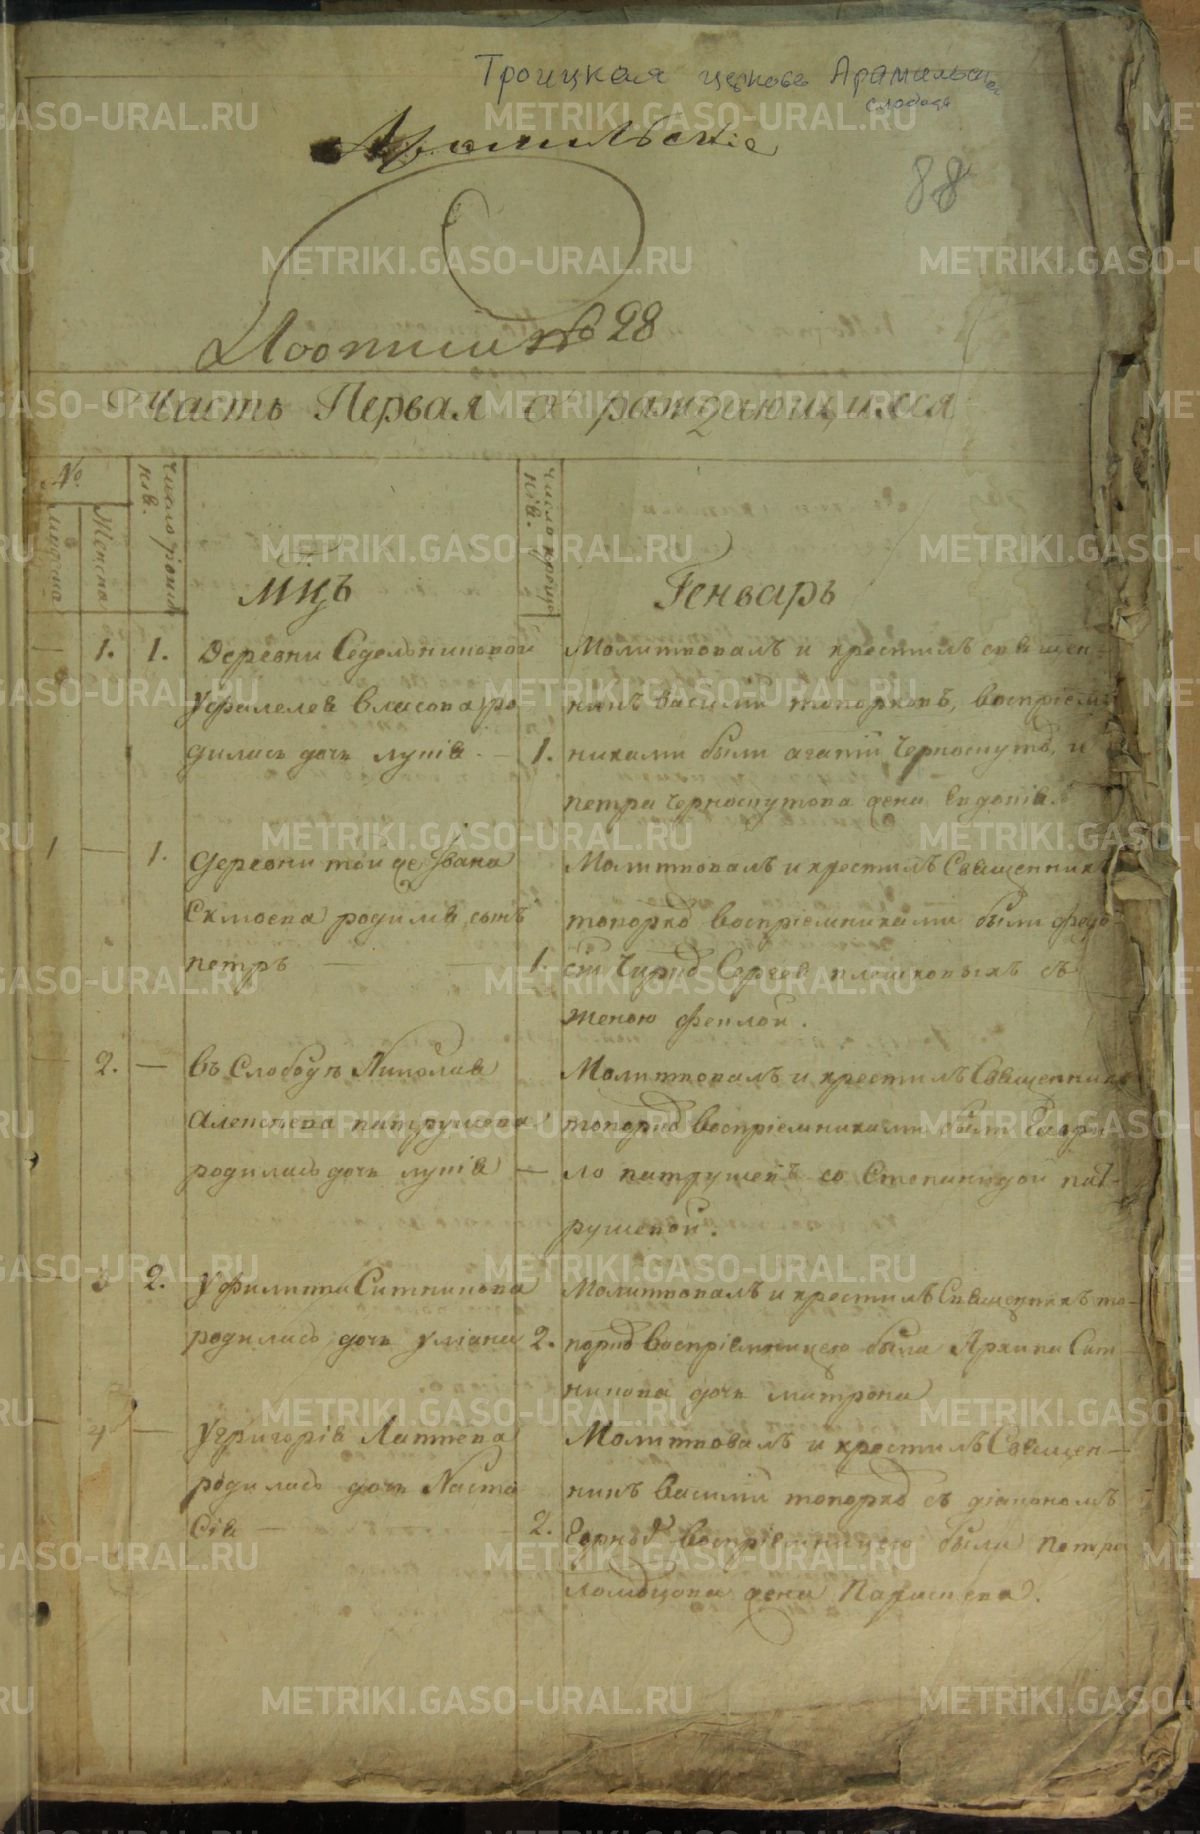 Троицкая церковь Арамильской
слободы
Арамильскіе
88
По описи № 28
Часть Первая о раждающихся
№.
мужеска
Женска
число рожденiя.
число крещенiя.
Мцъ
Генварь
1. 1. Деревни Седельниковой
У Фалелея Власова ро
дилась дочь лукiя — 1.
Молитвовалъ и крестилъ священ-
никъ Василiй топорковъ, воспрiем
никами были агапiй Черноскутовъ, и
петра Черноскутова жена Евдокiя.
1 — 1. Деревни той же Iвана
родился сынъ
петръ — 1.
Молитвовалъ и крестилъ Священникъ
топорков воспрiемниками были
Сергея плешковыхъ съ
женою феклой.
2. — Въ Слободѣ Николая
Алексеева патрушева
родилась дочь лукiя —
Молитвовалъ и крестилъ Священникъ
топорков воспрiемниками были Гаври
ло патрушевъ со Степанидой пат-
рушевой.
3 2. У филиппа Ситникова
родилась дочь улiана 2.
Молитвовалъ и крестилъ Священникъ то-
порков воспрiемницею была Архипа Сит-
никова дочь матрона
4 — У григорiя Лаптева
родилась дочь Наста
сiя — 2.
Молитвовалъ и крестилъ Священ-
никъ Василiй топорков съ дiакономъ
воспрiемницею были петра
жена Параскева.
METRIKI.GASO-URAL.RU